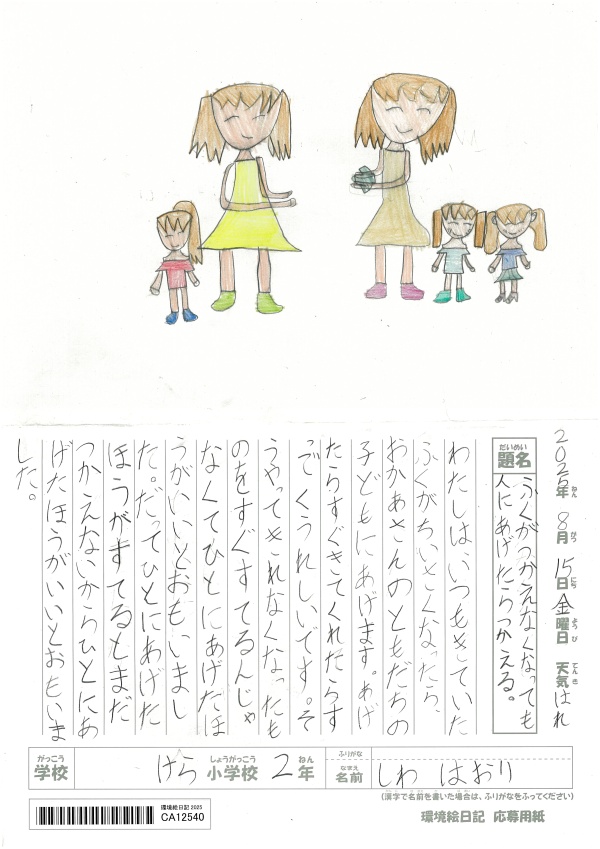 2025年ねん 8月がつ 15日にち 金曜日ようび 天気てんき はれ
題名だいめい ふくがつかえなくなっても
人にあげたらつかえる。
わたしは、いつもきていた
ふくがちいさくなったら、
おかあさんのともだちの
子どもにあげます。あげ
たらすぐきてくれたらす
っごくうれしいです。そ
うやってきれなくなったも
のをすぐすてるんじゃ
なくてひとにあげたほ
うがいいとおもいまし
た。だってひとにあげた
ほうがすてるとまだ
つかえないからひとにあ
げたほうがいいとおもいま
した。
学校がっこう けら 小学校しょうがっこう 2年ねん
ふりがな
名前なまえ しわ はおり
(漢字で名前を書いた場合は、ふりがなをふってください)
環境絵日記 2025
CA12540
環境絵日記 応募用紙